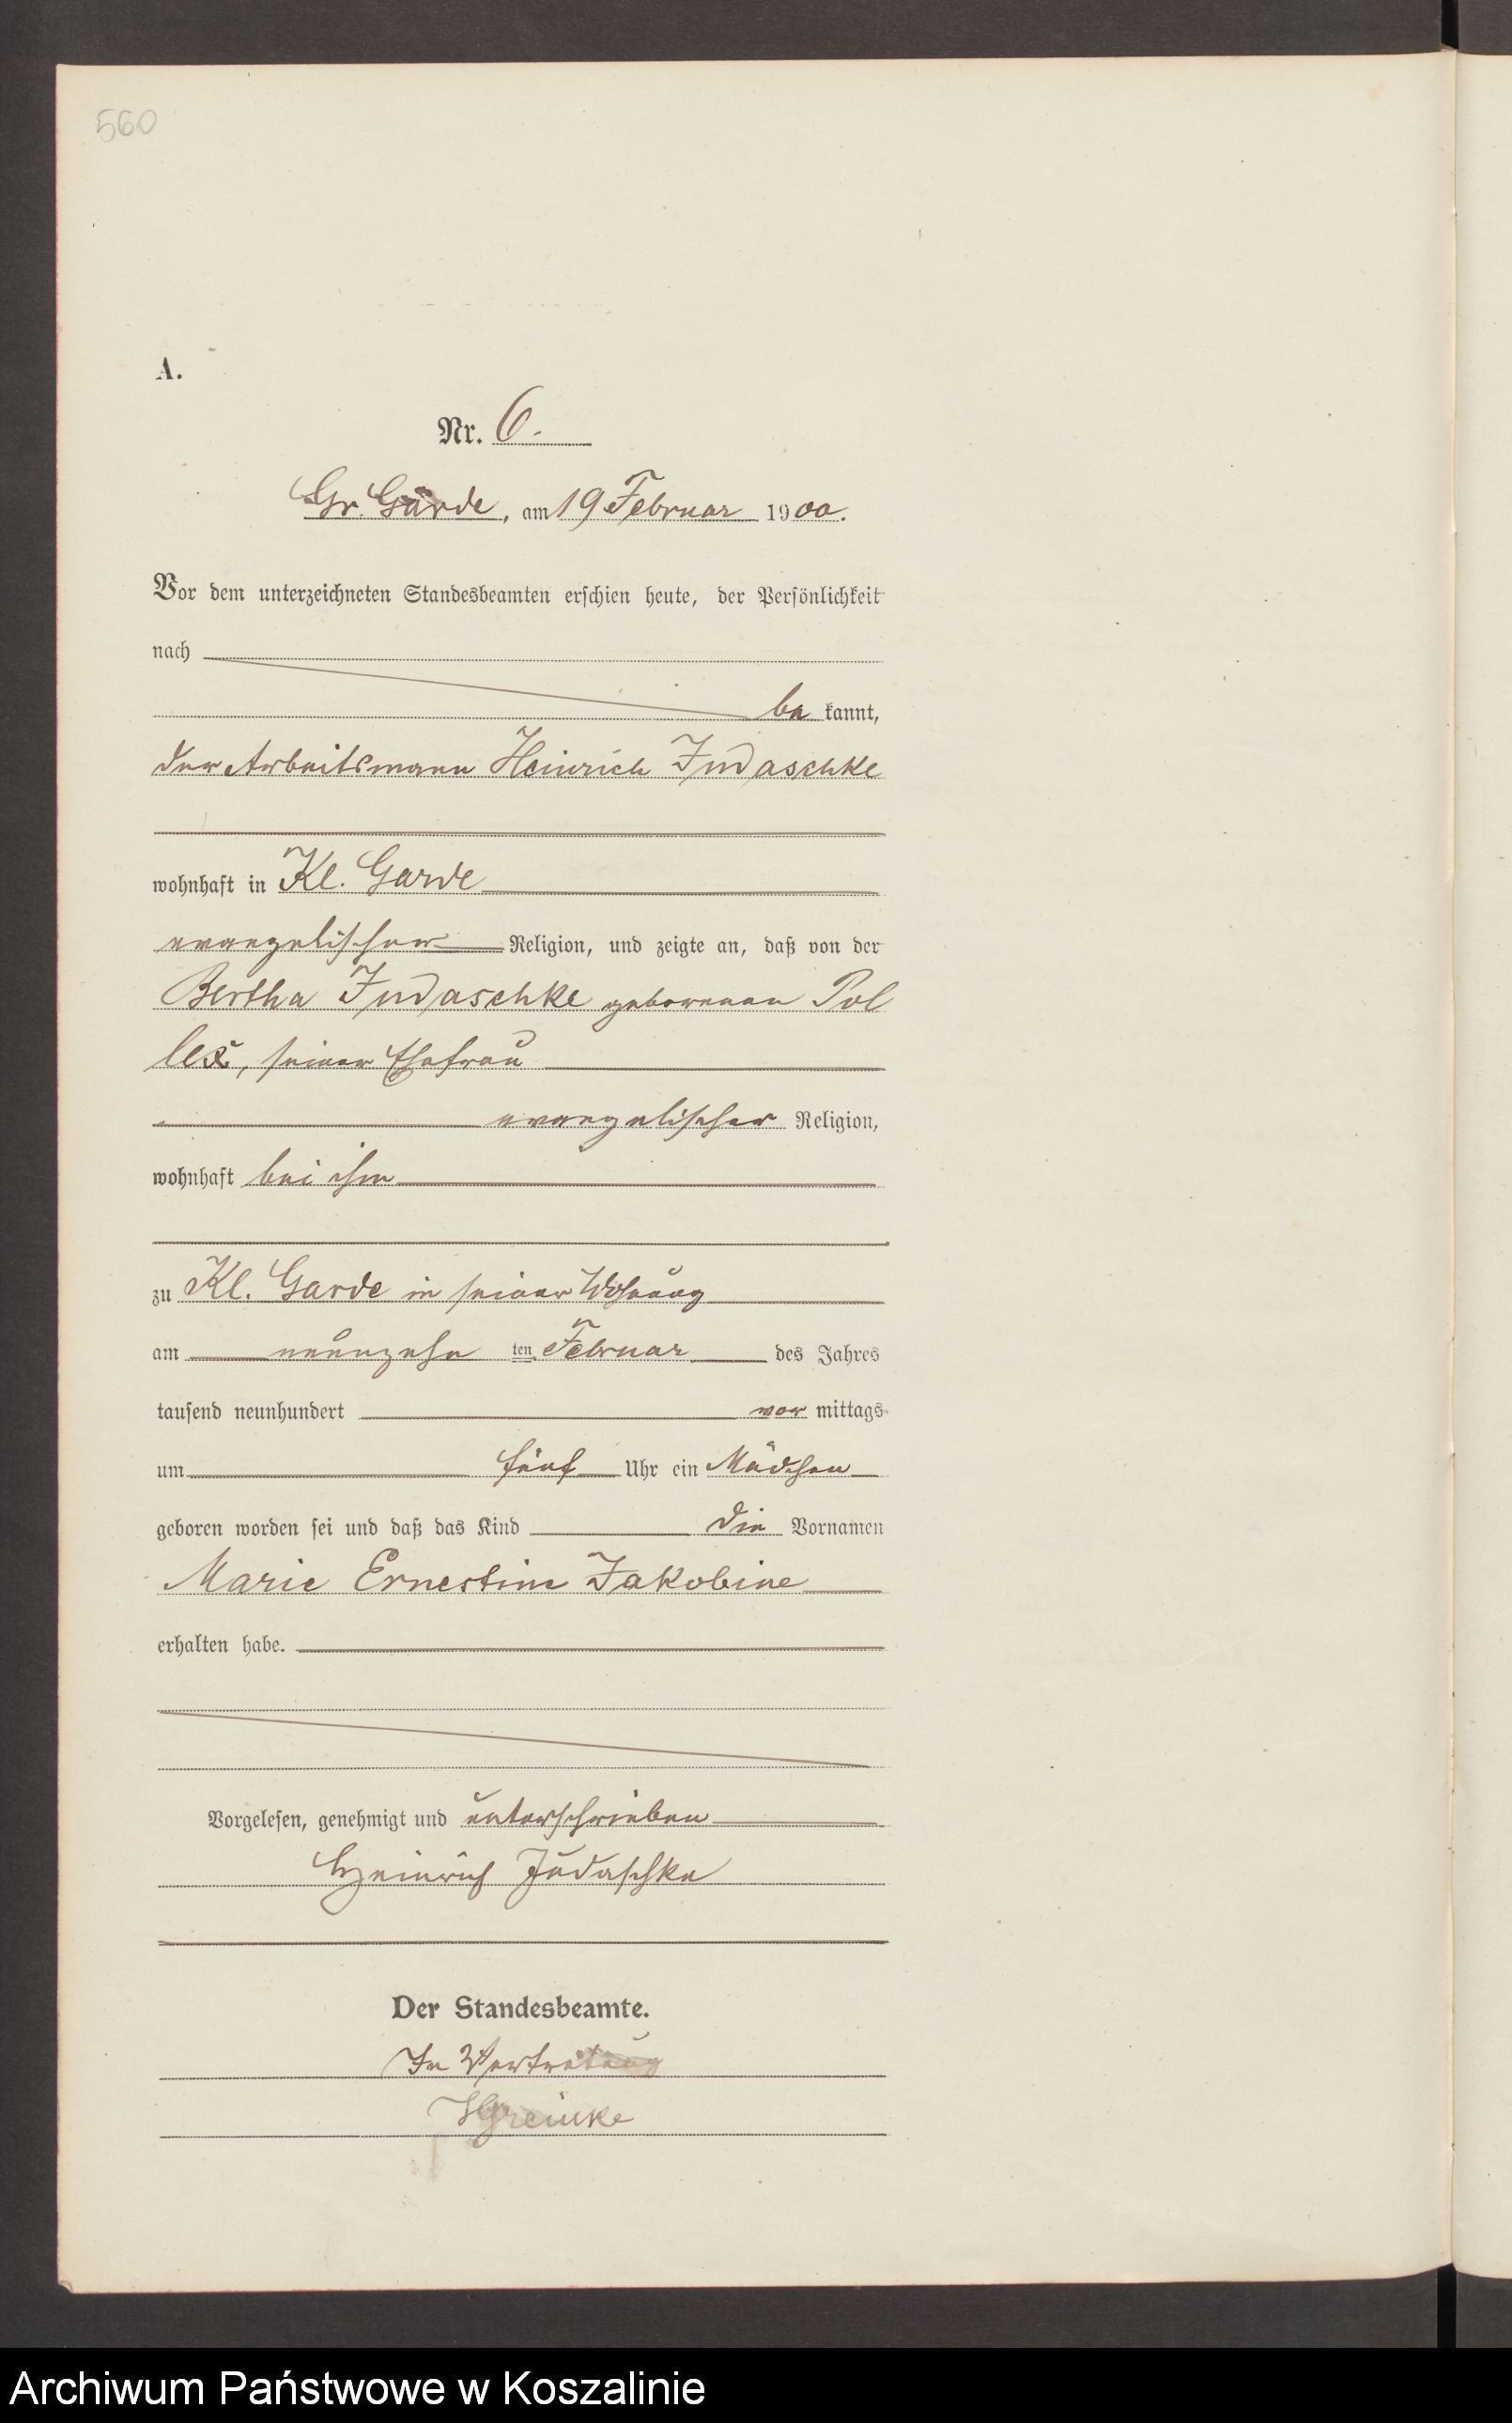 560
A.
Nr. 6.
Gr. Garde, am 19 Februar 1900.
Vor dem unterzeichneten Standesbeamten erschien heute, der Persönlichkeit
nach
be kannt,
der Arbeitsmann Heinrich Judaschke
wohnhaft in Kl. Garde
evangelischer Religion, und zeigte an, daß von der
Bertha Judaschke geborenen Pol
lex, seiner Ehefrau
evangelischer Religion,
wohnhaft bei ihm
zu Kl. Garde in seiner Wohnung
am neunzehn ten Februar des Jahres
tausend neunhundert vor mittags
um fünf Uhr ein Mädchen
geboren worden sei und daß das Kind die Vornamen
Marie Ernestine Jakobine
erhalten habe.
Vorgelesen, genehmigt und unterschrieben
Heinrich Judaschke
Der Standesbeamte.
In Vertretung
Greinke
Archiwum Państwowe w Koszalinie